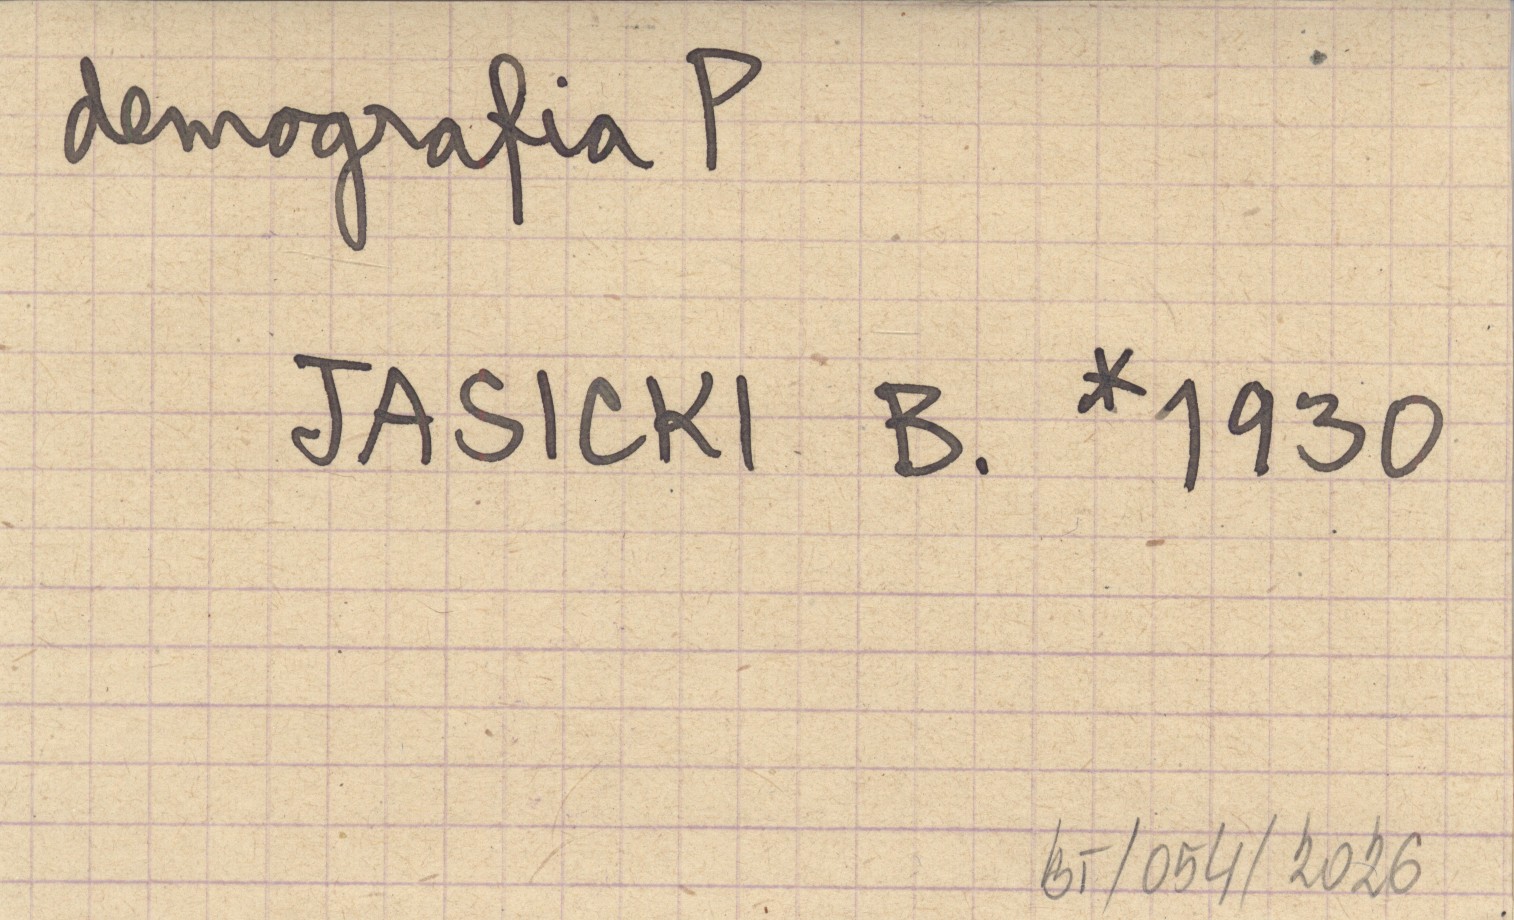 demografia P
JASICKI B. *1930
BT/054/2026